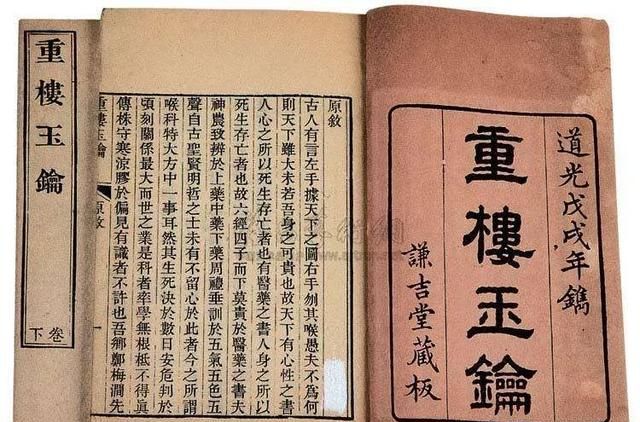 道光戊戌年鐫
重樓玉鑰
謙吉堂藏板
原敘
古人有言左手據天下之圖右手刎其喉愚夫不爲何
則天下雖大未若吾身之可貴也故天下有心性之書
人心之所以死生存亡者也有醫藥之書人身之所以
死生存亡者也故六經四子而下莫貴於醫藥之書夫
神農致辨於上藥中藥下藥周禮垂訓於五氣五色五
聲自古聖賢明哲之士未有不留心於此者今之所謂
喉科特大方中一事耳然其生死決於數日安危判於
頃刻關係最大而世之業是科者率學無根柢不得眞
傳株守寒涼膠於偏見有識者不許也吾鄉鄭梅澗先
重樓玉鑰 原敘
重樓玉鑰
卷下